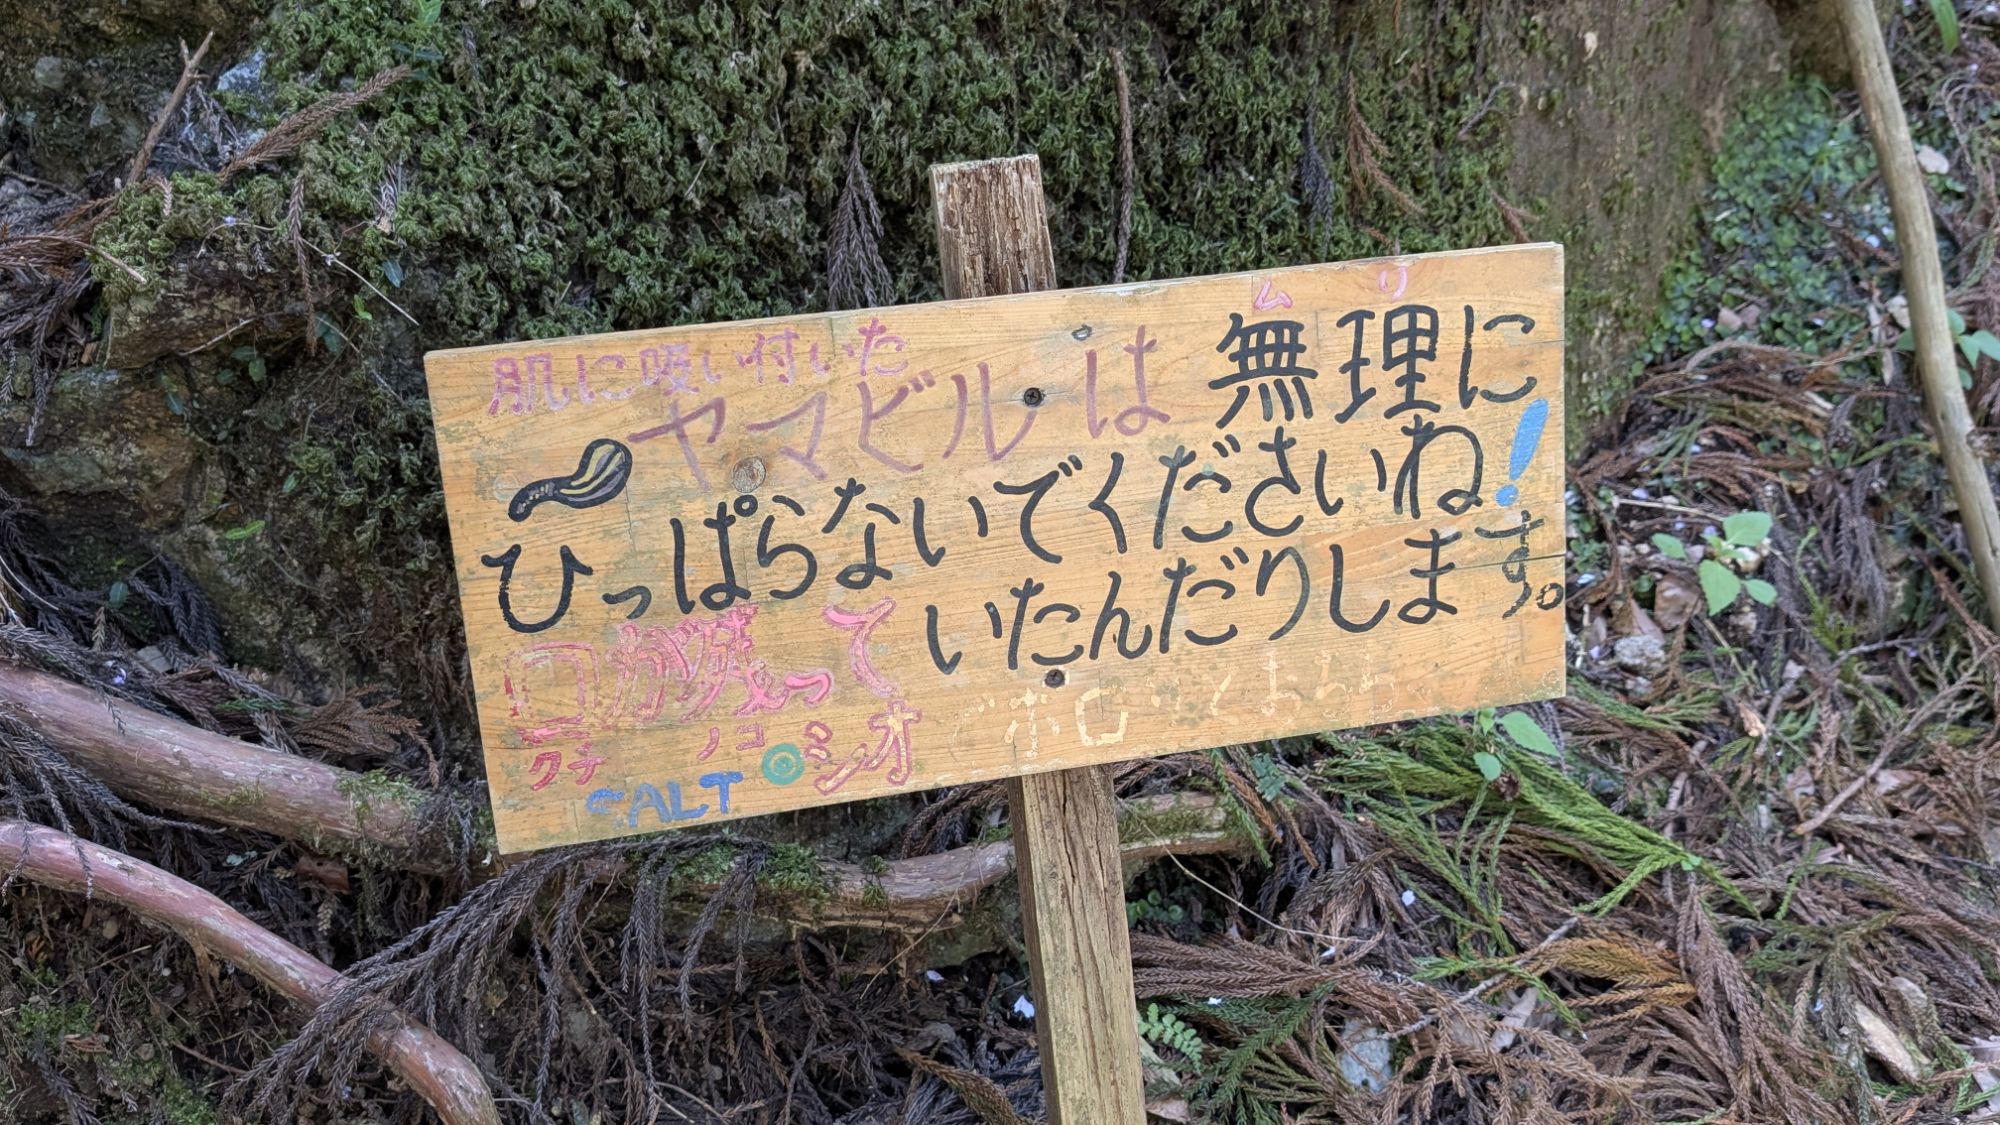 肌に吸い付いた
ヤマビルは無理に
ムリ
ひっぱらないでくださいね!
口が残っていたんだりします。
クチ ノコ
SALT◎シオ
でポロリとおちる